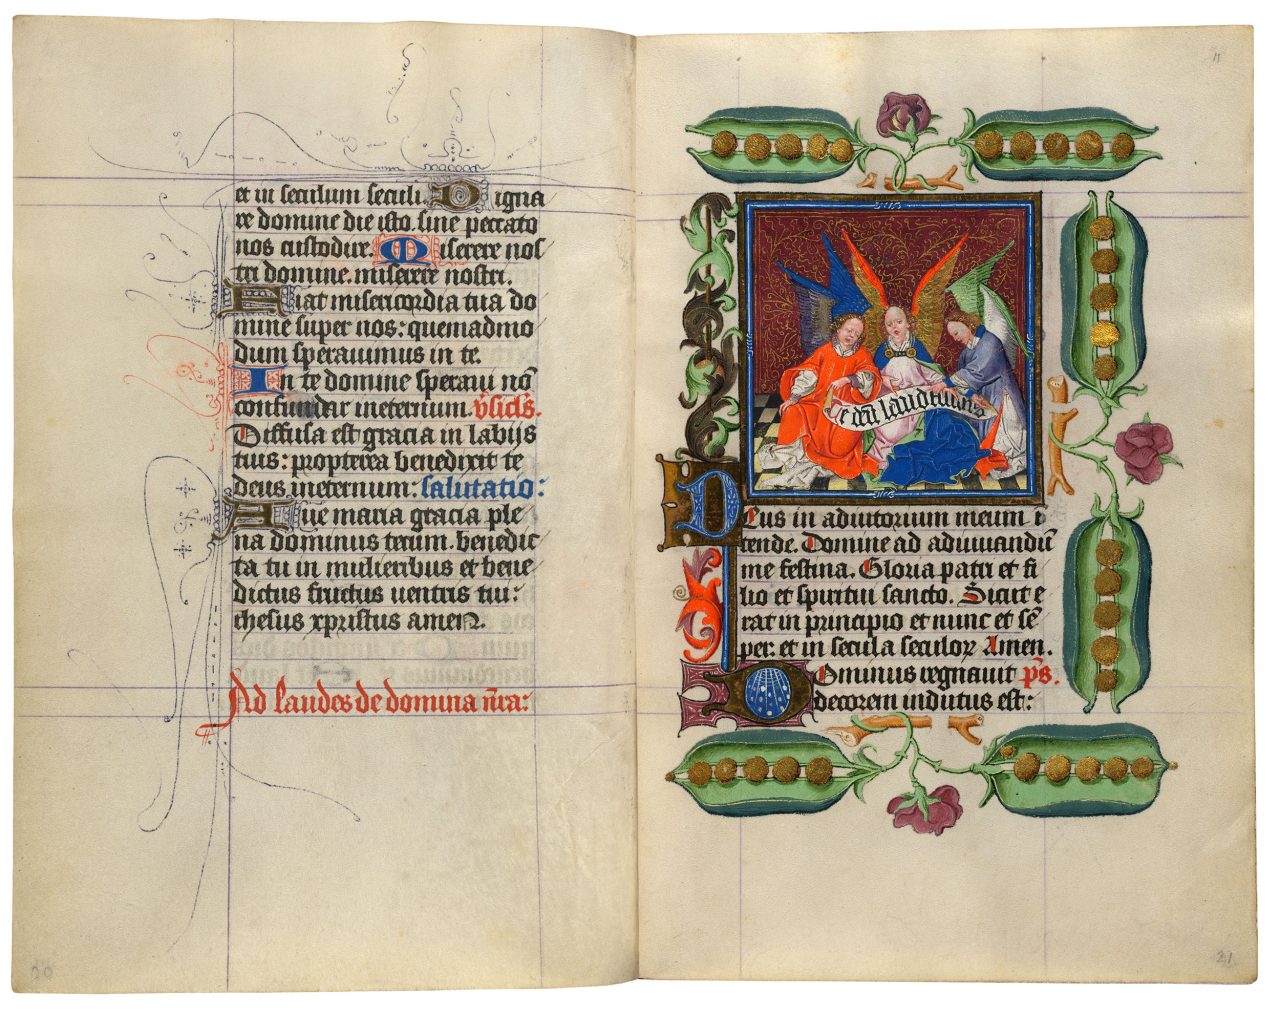 et in seculum seculi. Digna
re domine die isto. sine peccato
nos custodire. Miserere nos
tri domine. miserere nostri.
Fiat misericordia tua do
mine super nos: quemadmo
dum sperauimus in te.
In te domine speraui nō
confundar ineternum. v̄sicl's.
Diffusa est gracia in labijs
tuis: propterea benedixit te
deus ineternum: salutatio:
Aue maria gracia ple
na dominus tecum. benedic
ta tu in mulieribus et bene
dictus fructus uentris tui:
ihesus xpristus amen.
Ad laudes de domina nr̄a:
20
11
Te deū laudamus
Deus in adiutorium meum i
tende. Domine ad adiuuandū
me festina. Gloria patri et fi
lio et spiritui sancto. Sicut e
rat in principio et nunc et sē
per: et in secula seculoꝝ Amen.
Dominus regnauit p̄s.
decorem indutus est:
21